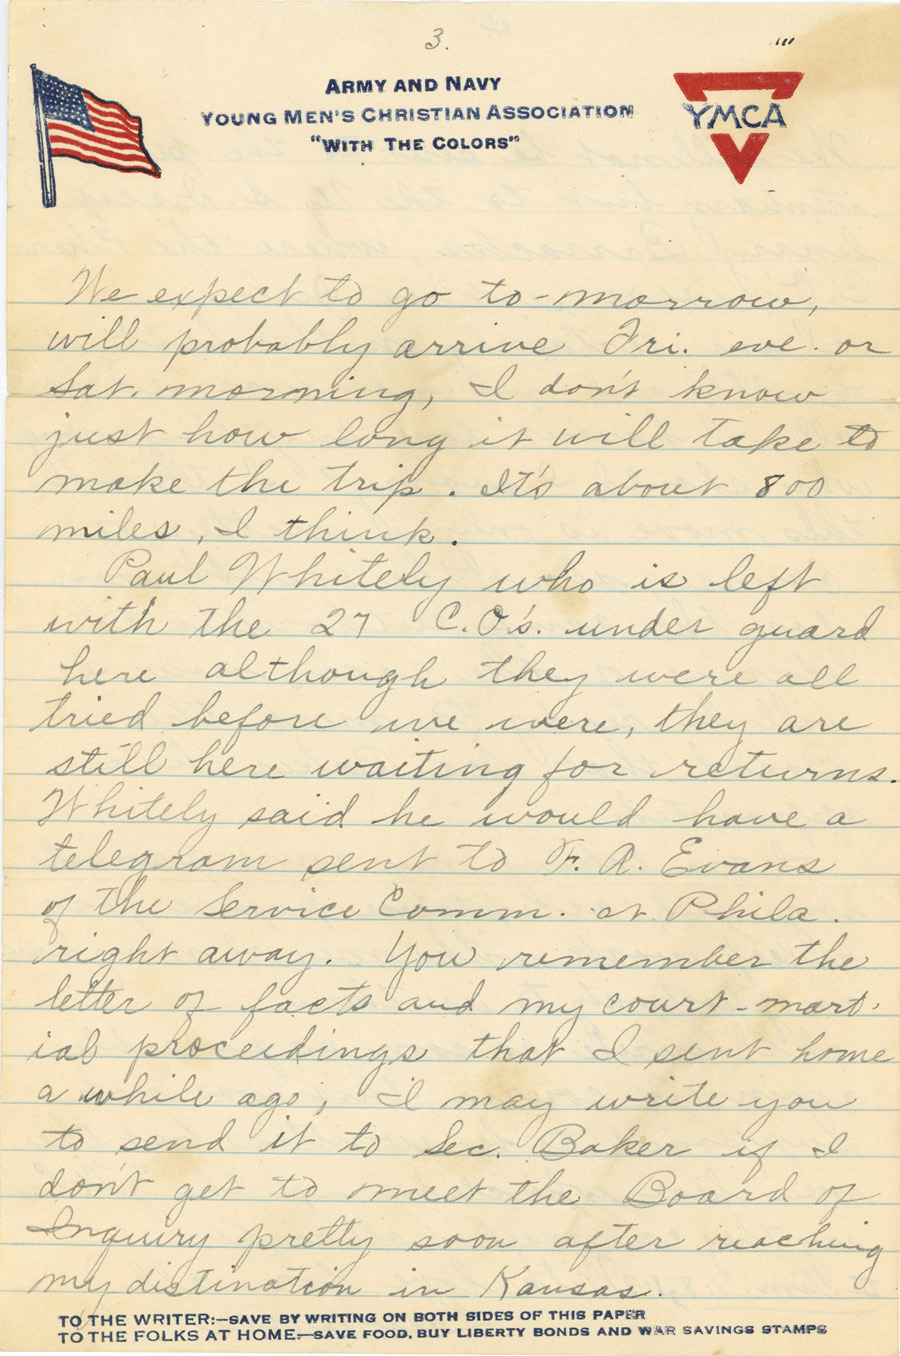 3.
ARMY AND NAVY
YOUNG MEN'S CHRISTIAN ASSOCIATION
"WITH THE COLORS"
YMCA
We expect to go to-morrow,
will probably arrive Fri. eve. or
Sat. morning, I don't know
just how long it will take to
make the trip. It's about 800
miles, I think.
Paul Whitely who is left
with the 27 C.O's. under guard
here although they were all
tried before we were, they are
still here waiting for returns.
Whitely said he would have a
telegram sent to F. A. Evans
of the Service Comm. at Phila.
right away. You remember the
letter of facts and my court-mart-
ial proceedings that I sent home
a while ago, I may write you
to send it to Sec. Baker if I
don't get to meet the Board of
Inquiry pretty soon after reaching
my distination in Kansas.
TO THE WRITER:—SAVE BY WRITING ON BOTH SIDES OF THIS PAPER
TO THE FOLKS AT HOME:—SAVE FOOD, BUY LIBERTY BONDS AND WAR SAVINGS STAMPS